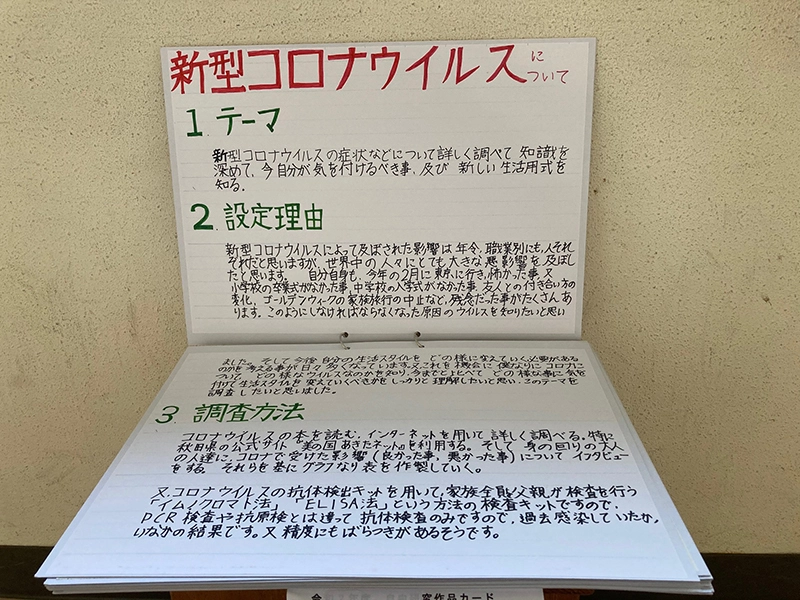 新型コロナウイルスに
ついて
1. テーマ
新型コロナウイルスの症状などについて詳しく調べて 知識を
深めて、今自分が気を付けるべき事、及び 新しい生活用式を
知る。
2. 設定理由
新型コロナウイルスによって及ぼされた影響は年令、職業別にも、人それ
ぞれだと思いますが、世界中の人々にとても大きな悪影響を及ぼし
たと思います。 自分自身も、今年の2月に東京に行き、怖かった事、又
小学校の卒業式がなかった事、中学校の入学式がなかった事、友人との付き合い方の
変化、ゴールデンウィークの家族旅行の中止など、残念だった事がたくさんあ
ります。このようにしなければならなくなった原因のウイルスを知りたいと思い
ました。そして今後自分の生活スタイルをどの様に変えていく必要がある
のかを考える事が日々多くなっています。又、これを機会に僕なりにコロナに
ついて、どの様なウイルスなのかを知り、今までと比べてどの様な事に気を
付けて生活スタイルを変えていくべきかをしっかりと理解したいと思い、このテーマを
調査したいと思いました。
3. 調査方法
コロナウイルスの本を読む、インターネットを用いて詳しく調べる。特に
秋田県の公式サイト 美の国あきたネットを利用する。そして、身の回りの大人
の人達に、コロナで受けた影響(良かった事、悪かった事)についてインタビュー
をする。それらを基にグラフなり表を作製していく。
又、コロナウイルスの抗体検出キットを用いて、家族全員と父親が検査を行う
「イムノクロマト法」「ELISA法」という方法の検査キットですので、
PCR検査や抗原検とは違って抗体検査のみですので、過去感染していたか、
いなかの結果です。又精度にもばらつきがあるそうです。
作品カード